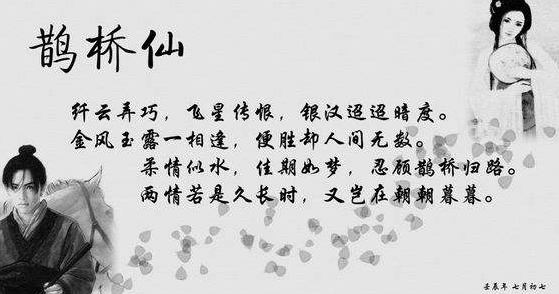 鹊桥仙
纤云弄巧，飞星传恨，银汉迢迢暗度。
金风玉露一相逢，便胜却人间无数。
柔情似水，佳期如梦，忍顾鹊桥归路。
两情若是久长时，又岂在朝朝暮暮。
壬辰年 七月初七